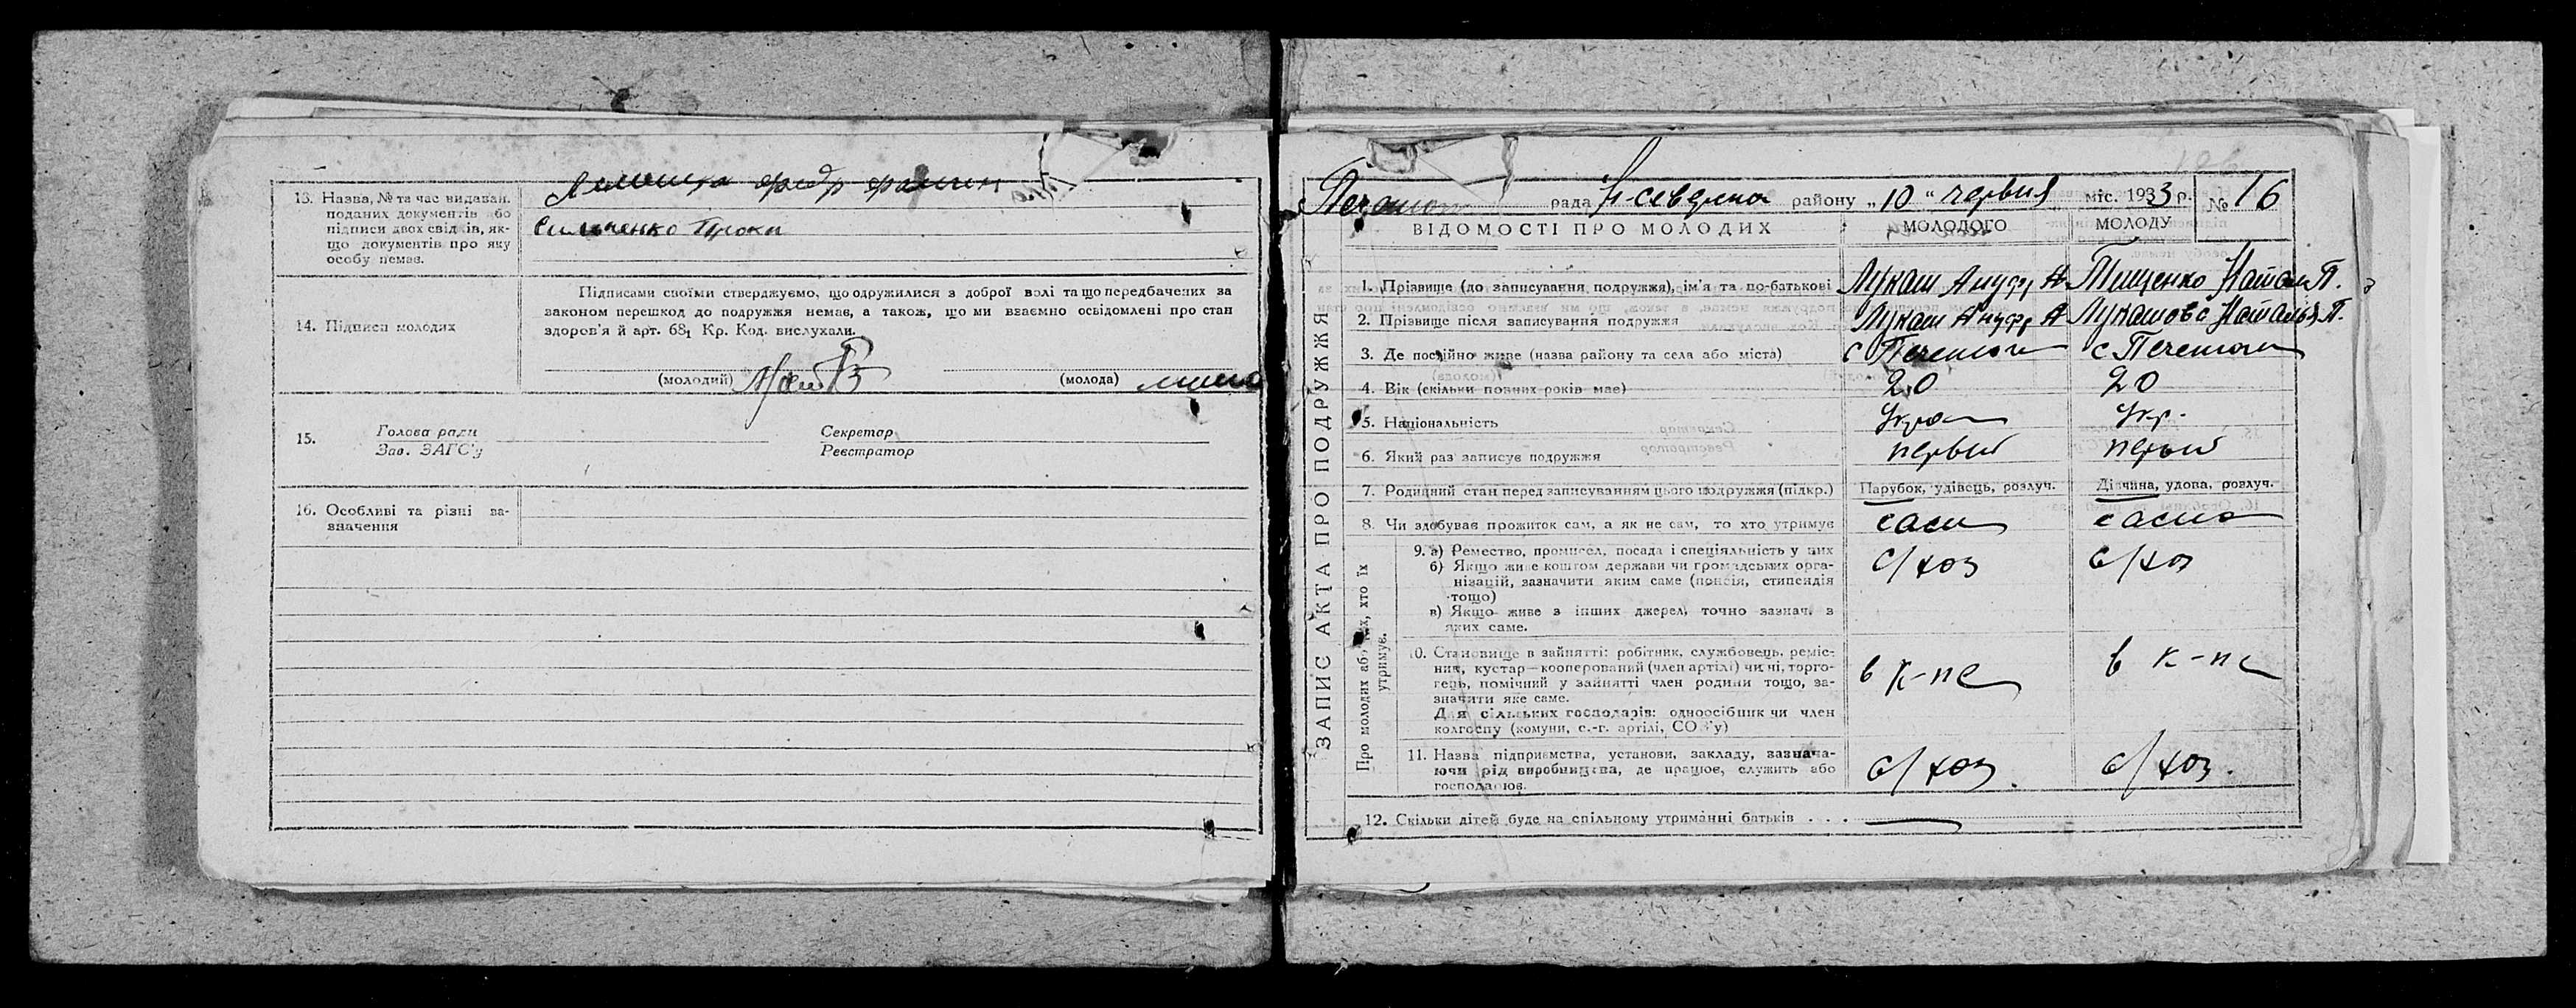 13. Назва, № та час видаван. поданих документів або підписи двох свідків, якщо документів про яку особу немає.
Сильченко Проки
14. Підписи молодих
Підписами своїми стверджуємо, що одружилися з доброї волі та що передбачених за
законом перешкод до подружжя немає, а також, що ми взаємно освідомлені про стан
здоров'я й арт. 68₁ Кр. Код. вислухали.
(молодий) (молода)
15. Голова ради Секретар
Зав. ЗАГС'у Реєстратор
16. Особливі та різні зазначення
ЗАПИС АКТА ПРО ПОДРУЖЖЯ
рада Н-северска району „10“ червня міс. 1933 р. № 16
ВІДОМОСТІ ПРО МОЛОДИХ МОЛОДОГО МОЛОДУ
1. Прізвище (до записування подружжя), ім'я та по-батькові Лукаш Ануфр А Тищенко Натал П.
2. Прізвище після записування подружжя Лукаш Ануфр А Лукашова Наталья П.
3. Де постійно живе (назва району та села або міста) с Печенюги с Печенюги
4. Вік (скільки повних років має) 20 20
5. Національність Укра Укр.
6. Який раз записує подружжя первый первый
7. Родинний стан перед записуванням цього подружжя (підкр.) Парубок, удівець, розлуч. Дівчина, удова, розлуч.
8. Чи здобуває прожиток сам, а як не сам, то хто утримує сам сама
Про молодих або тих, хто їх утримує.
9. а) Ремество, промисел, посада і спеціяльність у них с/хоз с/хоз
б) Якщо живе коштом держави чи громадських організацій, зазначити яким саме (пенсія, стипендія тощо)
в) Якщо живе з інших джерел, точно зазнач. з яких саме.
10. Становище в зайнятті: робітник, службовець, ремісник, кустар—кооперований (член артілі) чи ні, торговець, помічний у зайнятті член родини тощо, зазначити яке саме. в к-пе в к-пе
Для сільських господарів: одноосібник чи член колгоспу (комуни, с.-г. артілі, СОЗ'у)
11. Назва підприємства, установи, закладу, зазначаючи рід виробництва, де працює, служить або господарює. с/хоз. с/хоз.
12. Скільки дітей буде на спільному утриманні батьків . . . —